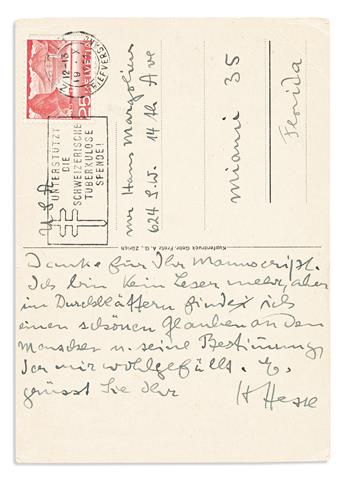 25 HELVETIA
V. 12-13
19. X.
BRIEFVERSAND
UNTERSTÜTZT
DIE
SCHWEIZERISCHE
TUBERKULOSE
SPENDE!
Mr Hans Margolius
624 S.W. 14th Ave
Miami 35
Florida
U S A
Kupferdruck Gebr. Fretz A. G., Zürich
Danke für Ihr Manuscript.
Ich bin kein Leser mehr, aber
im Durchblättern finde ich
einen schönen Glauben an den
Menschen u. seine Bestimmung,
der mir wohlgefällt. Es
grüsst Sie Ihr H Hesse